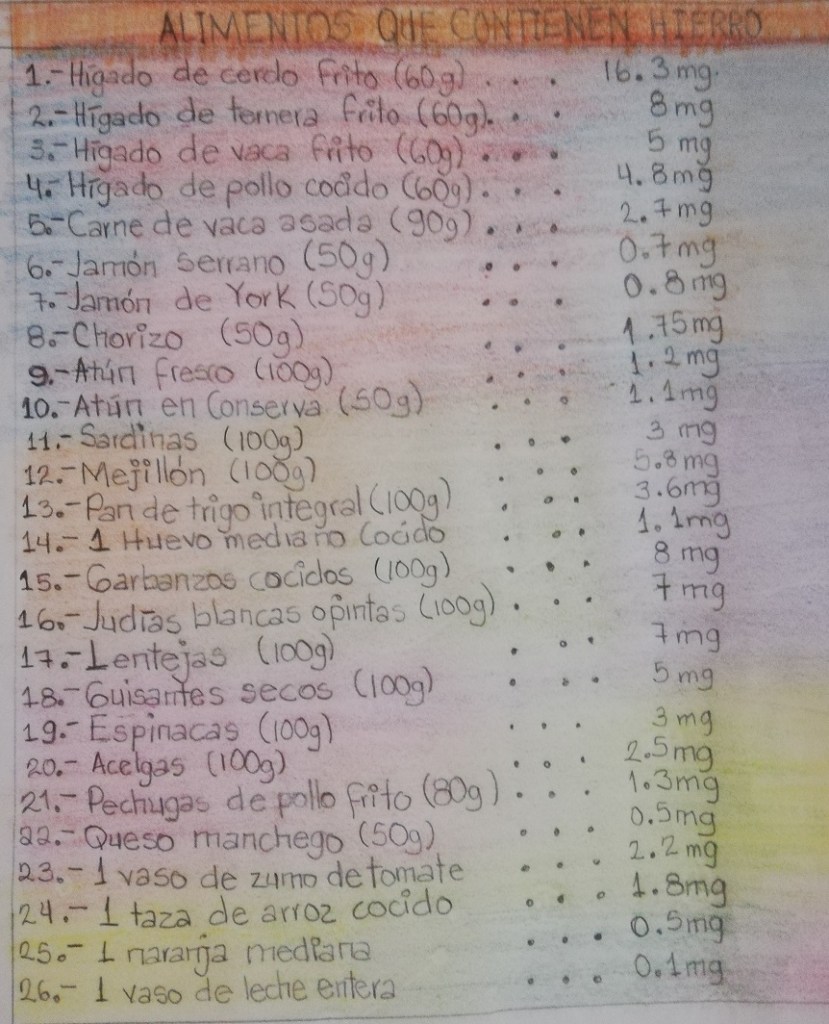 ALIMENTOS QUE CONTIENEN HIERRO
1.- Hígado de cerdo frito (60g) . . . 16.3mg.
2.- Hígado de ternera frito (60g). . . 8mg
3.- Hígado de vaca frito (60g) . . . 5 mg
4.- Hígado de pollo cocido (60g). . . 4.8mg
5.- Carne de vaca asada (90g) . . . 2.7mg
6.- Jamón serrano (50g) . . . 0.7mg
7.- Jamón de York (50g) . . . 0.8mg
8.- Chorizo (50g) . . . 1.75mg
9.- Atún fresco (100g) . . . 1.2mg
10.- Atún en Conserva (50g) . . . 1.1mg
11.- Sardinas (100g) . . . 3 mg
12.- Mejillón (100g) . . . 5.8mg
13.- Pan de trigo integral (100g) . . . 3.6mg
14.- 1 Huevo mediano Cocido . . . 1.1mg
15.- Garbanzos cocidos (100g) . . . 8 mg
16.- Judías blancas o pintas (100g) . . . 7 mg
17.- Lentejas (100g) . . . 7mg
18.- Guisantes secos (100g) . . . 5 mg
19.- Espinacas (100g) . . . 3 mg
20.- Acelgas (100g) . . . 2.5mg
21.- Pechugas de pollo frito (80g) . . . 1.3mg
22.- Queso manchego (50g) . . . 0.5mg
23.- 1 vaso de zumo de tomate . . . 2.2mg
24.- 1 taza de arroz cocido . . . 1.8mg
25.- 1 naranja mediana . . . 0.5mg
26.- 1 vaso de leche entera . . . 0.1mg